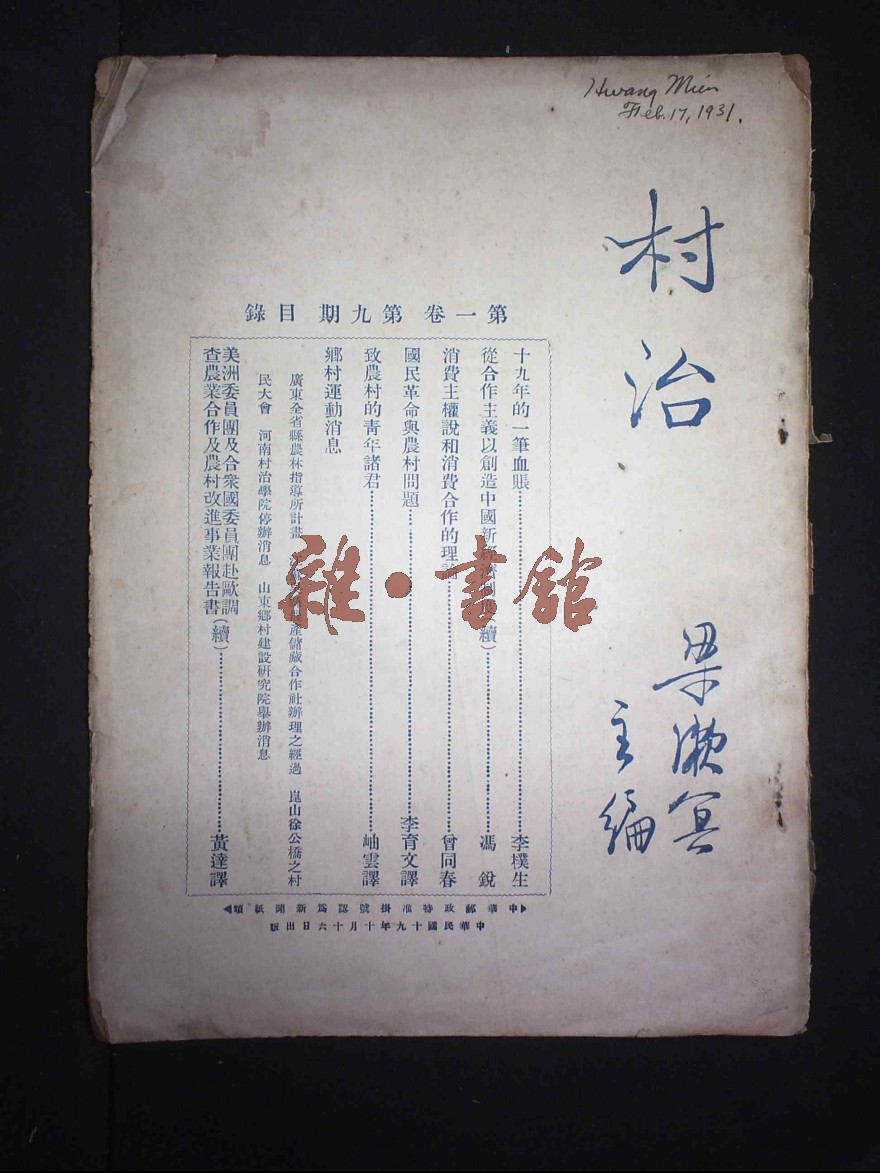 Hwang Mien
Feb. 17, 1931.
村治
梁漱冥
主編
第一卷第九期目錄
十九年的一筆血賬 李樸生
從合作主義以創造中國新經濟制度(續) 馮銳
消費主權說和消費合作的理論 曾同春
國民革命與農村問題 李育文譯
致農村的青年諸君 岫雲譯
鄉村運動消息
廣東全省縣農林指導所計畫 產儲藏合作社辦理之經過 崑山徐公橋之村
民大會 河南村治學院停辦消息 山東鄉村建設研究院舉辦消息
美洲委員團及合衆國委員團赴歐調
查農業合作及農村改進事業報告書(續) 黃達譯
中華郵政特准掛號認爲新聞紙類
中華民國十九年十月十六日出版
雜·書館